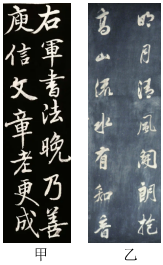 右軍書法晚乃善
庾信文章老更成
甲
明月清風開朗抱
高山流水有知音
乙